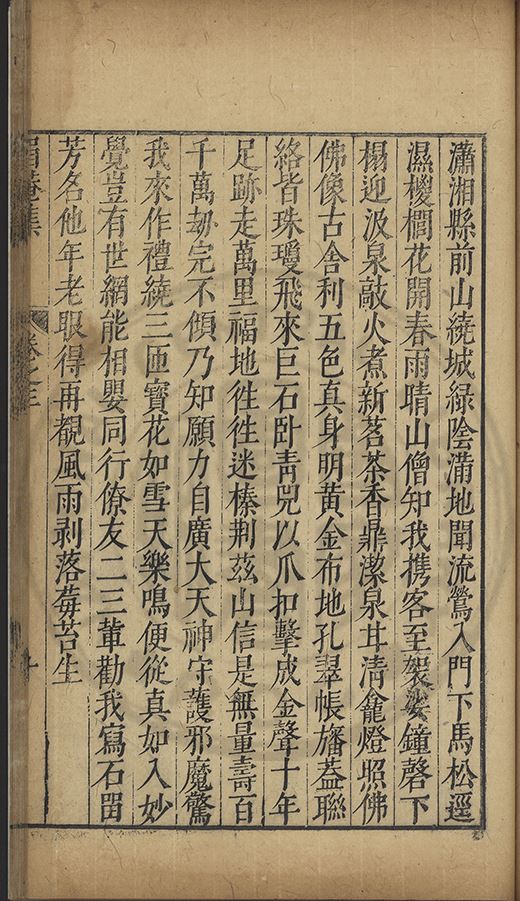 瀟湘縣前山繞城綠陰滿地聞流鶯入門下馬松逕
濕椶櫚花開春雨晴山僧知我携客至袈裟鐘磬下
榻迎汲泉敲火煮新茗茶香鼎潔泉井清龕燈照佛
佛像古舍利五色真身明黃金布地孔翠帳旛蓋聯
絡皆珠瓊飛來巨石卧青兕以爪扣擊成金聲十年
足跡走萬里福地徃徃迷榛荆茲山信是無量壽百
千萬劫完不傾乃知願力自廣大天神守護邪魔驚
我來作禮繞三匝寶花如雪天樂鳴便從真如入妙
覺豈有世網能相嬰同行僚友二三軰勸我寫石畱
芳名他年老眼得再覩風雨剥落莓苔生
集
卷之三
十